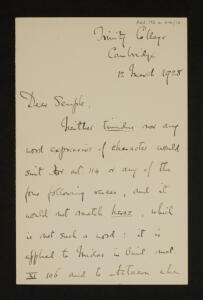 Trinity College
Cambridge
12 March 1928
Dear Semple,
Neither timidus nor any
word expressive of character would
suit for at 114 or any of the
four following verses, and it
would not match, which
is not such a word: it is
applied to Midas in Ovid met
XI 106 and to